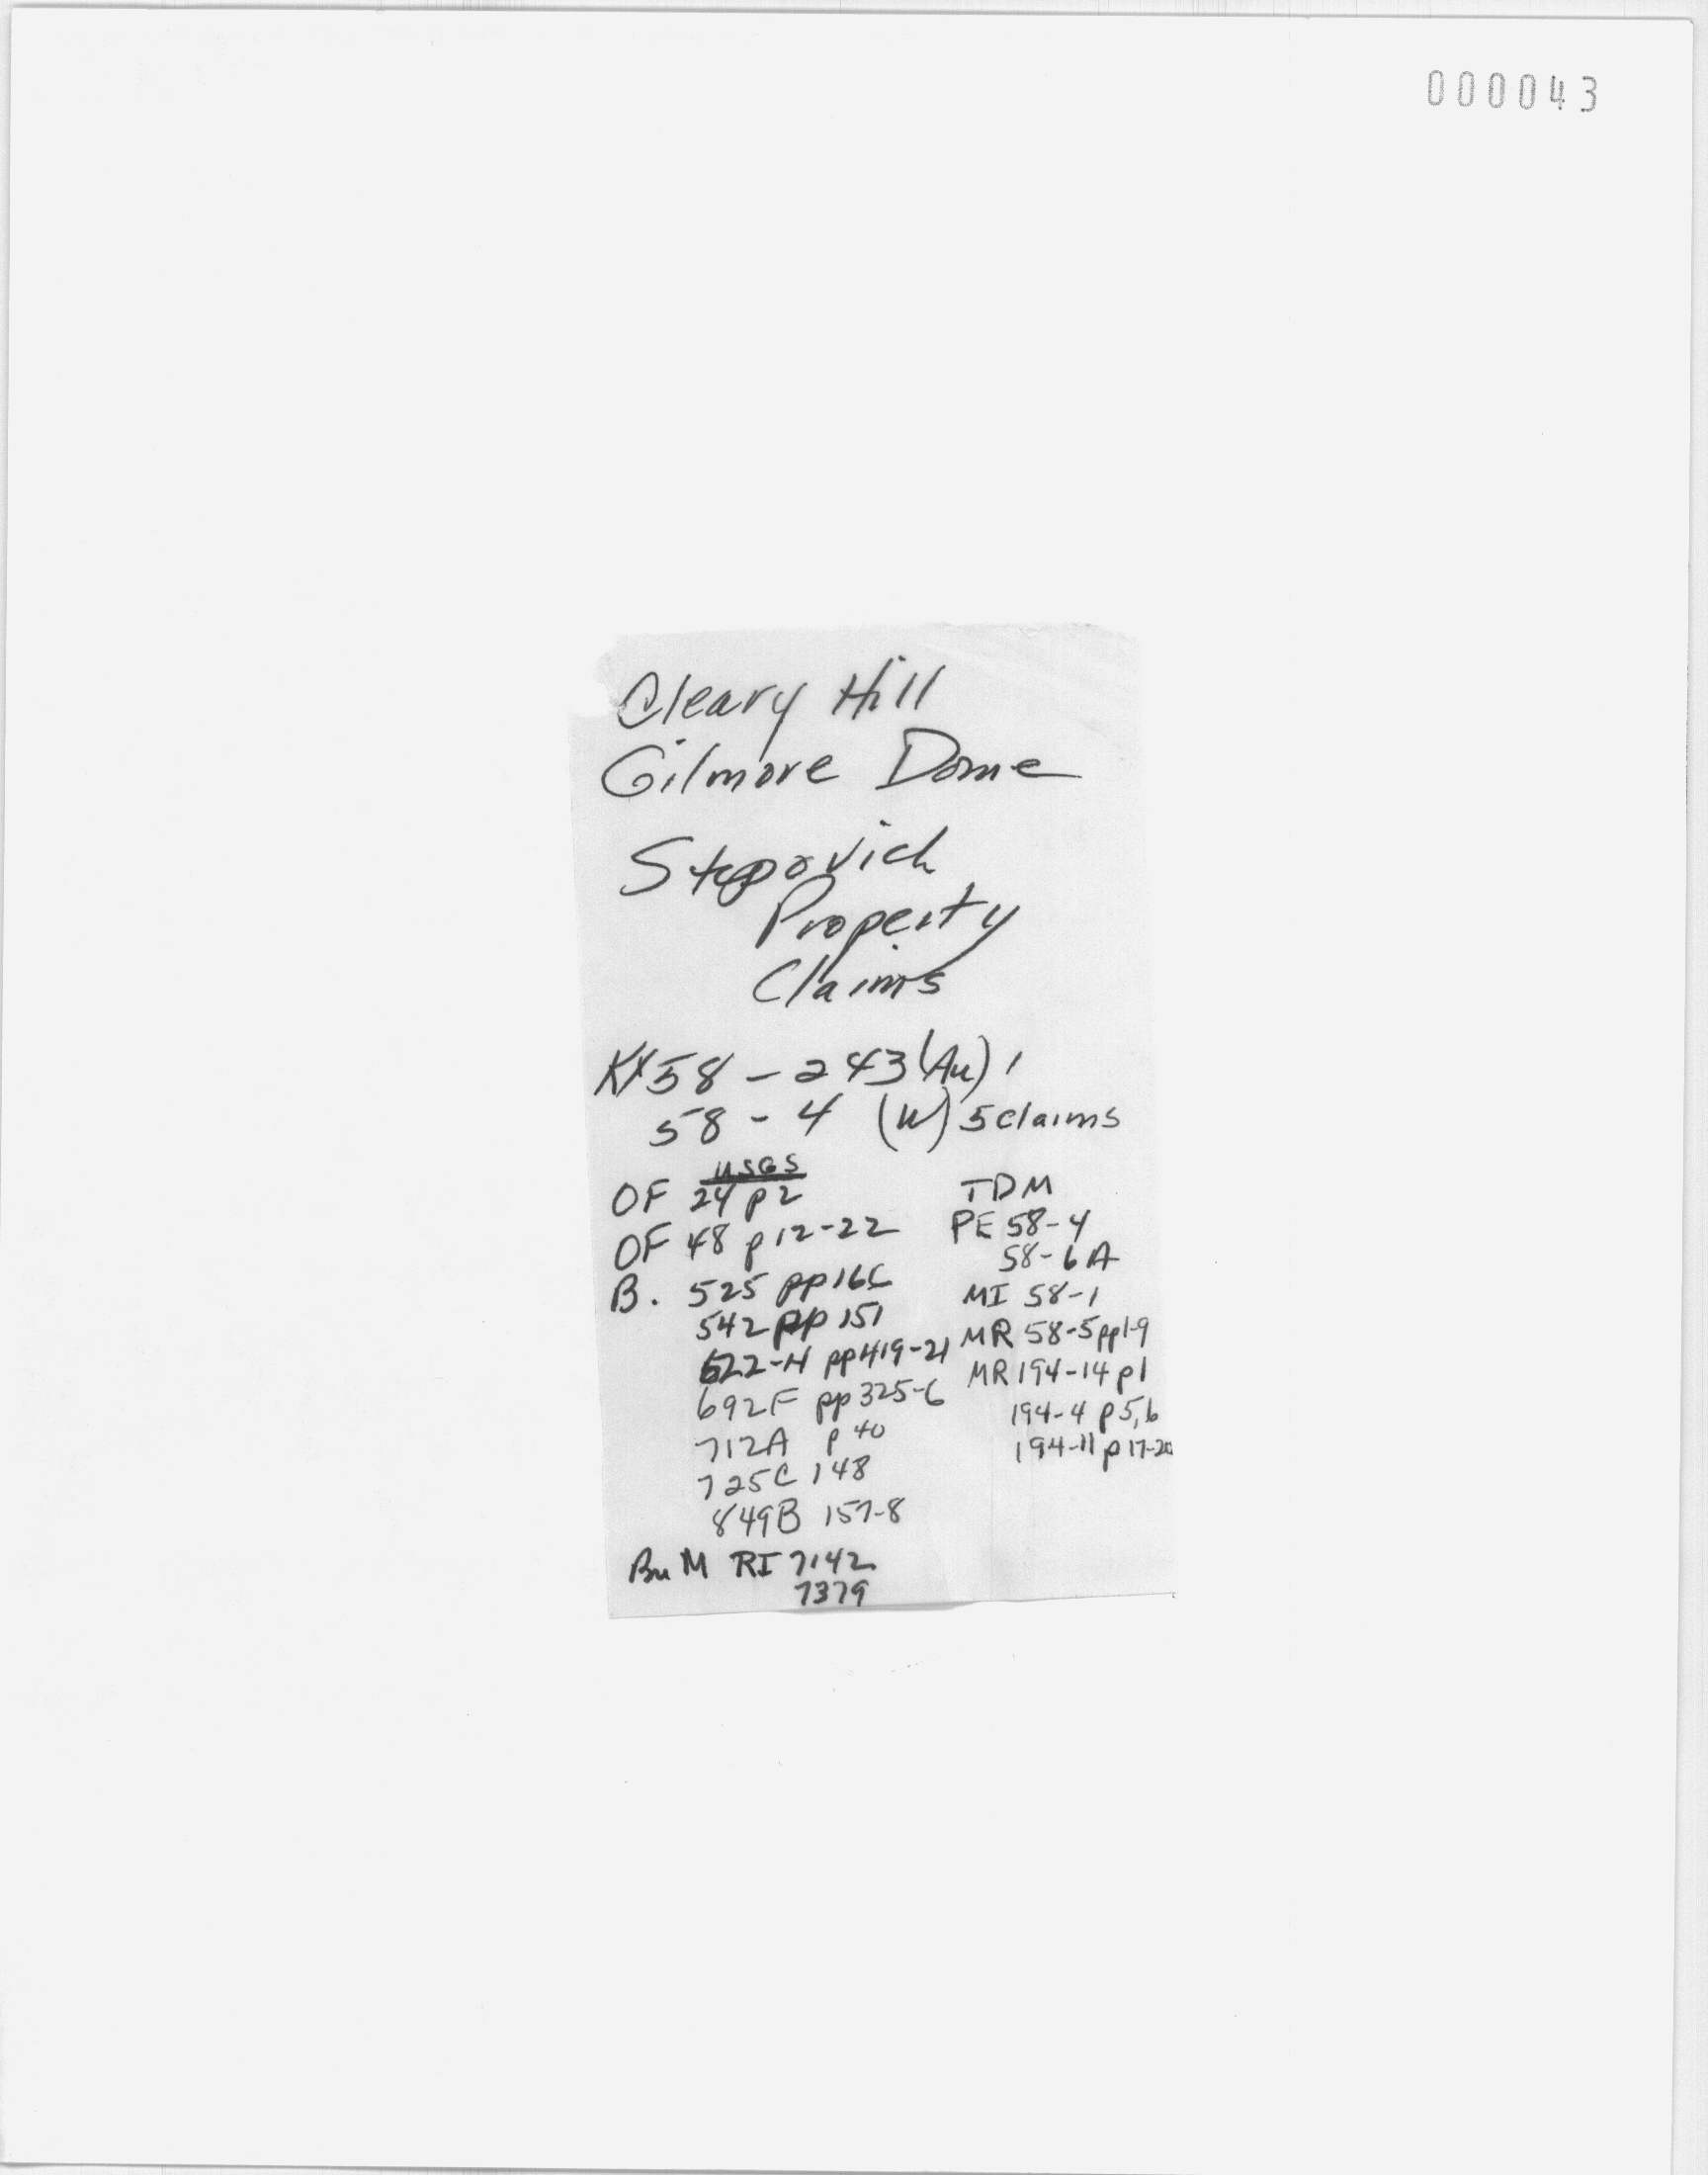 000043
Cleary Hill
Gilmore Dome
Stepovich
Property
Claims
KX58-243(Au) 1
58-4 (W) 5 claims
USGS
OF 24 p2
OF 48 p12-22
B. 525 pp 166
542 pp 151
622-H pp419-21
692F pp 325-6
712A p 40
725C 148
849B 157-8
BuM RI 7142
7379
TDM
PE 58-4
58-6A
MI 58-1
MR 58-5 pp1-9
MR 194-14 p1
194-4 p5,6
194-11 p 17-20